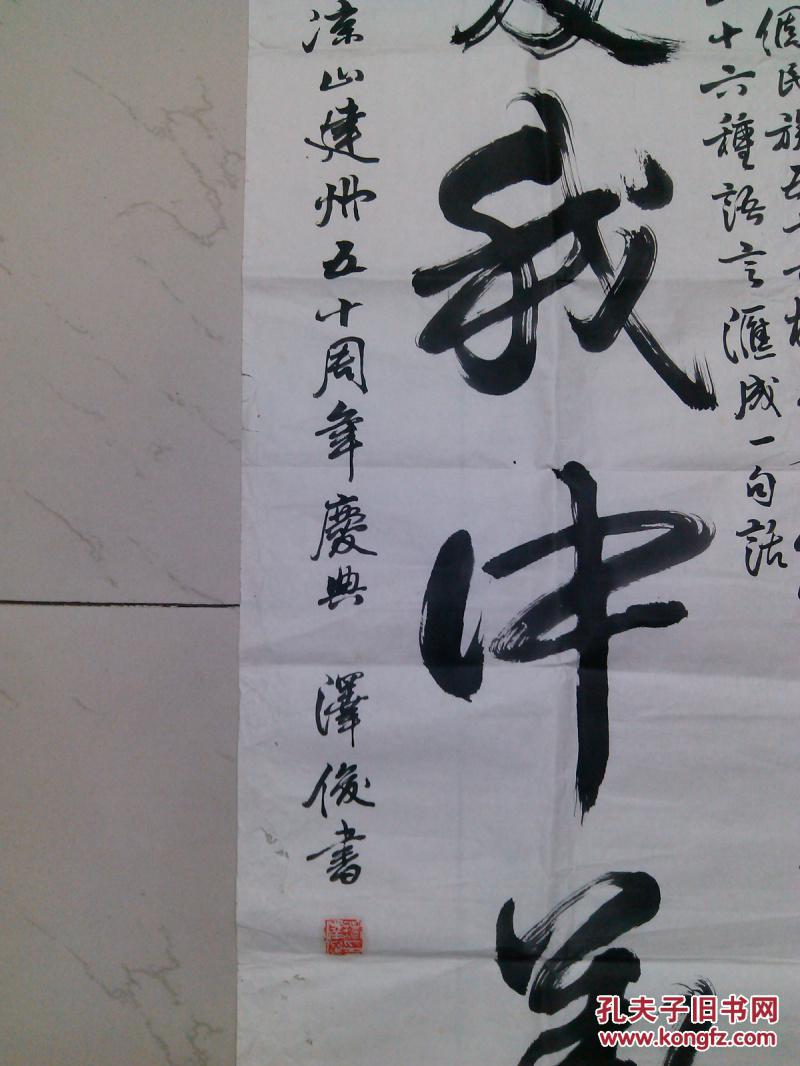 個民族五十六枝
十六種語言滙成一句話
我中華
凉山建州五十周年慶典 澤俊書
孔夫子旧书网
www.kongfz.com